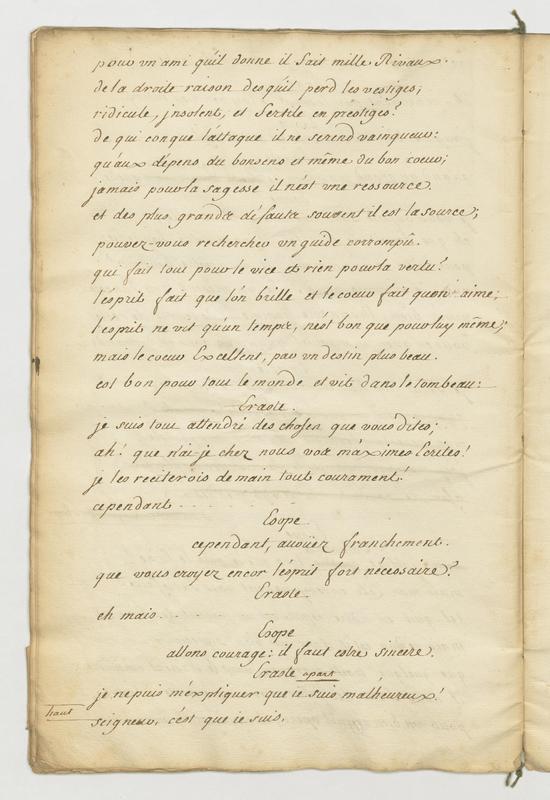 pour un ami qu'il donne il fait mille Rivaux.
de la droite raison des qu'il perd les vestiges,
ridicule, jnsolent, et fertile en prestiges?
de qui conque l'attaque il ne se rend vainqueur:
qu'aux dépens du bon sens et même du bon coeur;
jamais pour la sagesse il n'est une ressource.
et des plus grands défauts souvent il est la source;
pouvez-vous rechercher un guide corrompû.
qui fait tout pour le vice et rien pour la vertu?
l'esprit fait que l'on brille et le coeur fait qu'on aime;
l'esprit ne vit qu'un temps, n'est bon que pour luy même;
mais le coeur Excellent, par un destin plus beau.
est bon pour tout le monde et vit dans le tombeau:
Eraste.
je suis tout attendri des choses que vous dites;
ah! que n'ai je chez nous vos maximes Ecrites!
je les reciterois demain tout courament!
cependant . . . . . .
Esope
cependant, avoüez franchement.
que vous croyez encor l'esprit fort nécessaire?
Eraste
eh mais. . . . . . .
Esope
allons courage: il faut estre sincere.
Eraste apart
je ne puis m'expliquer que je suis malheureux!
haut
seigneur, c'est que ie suis.